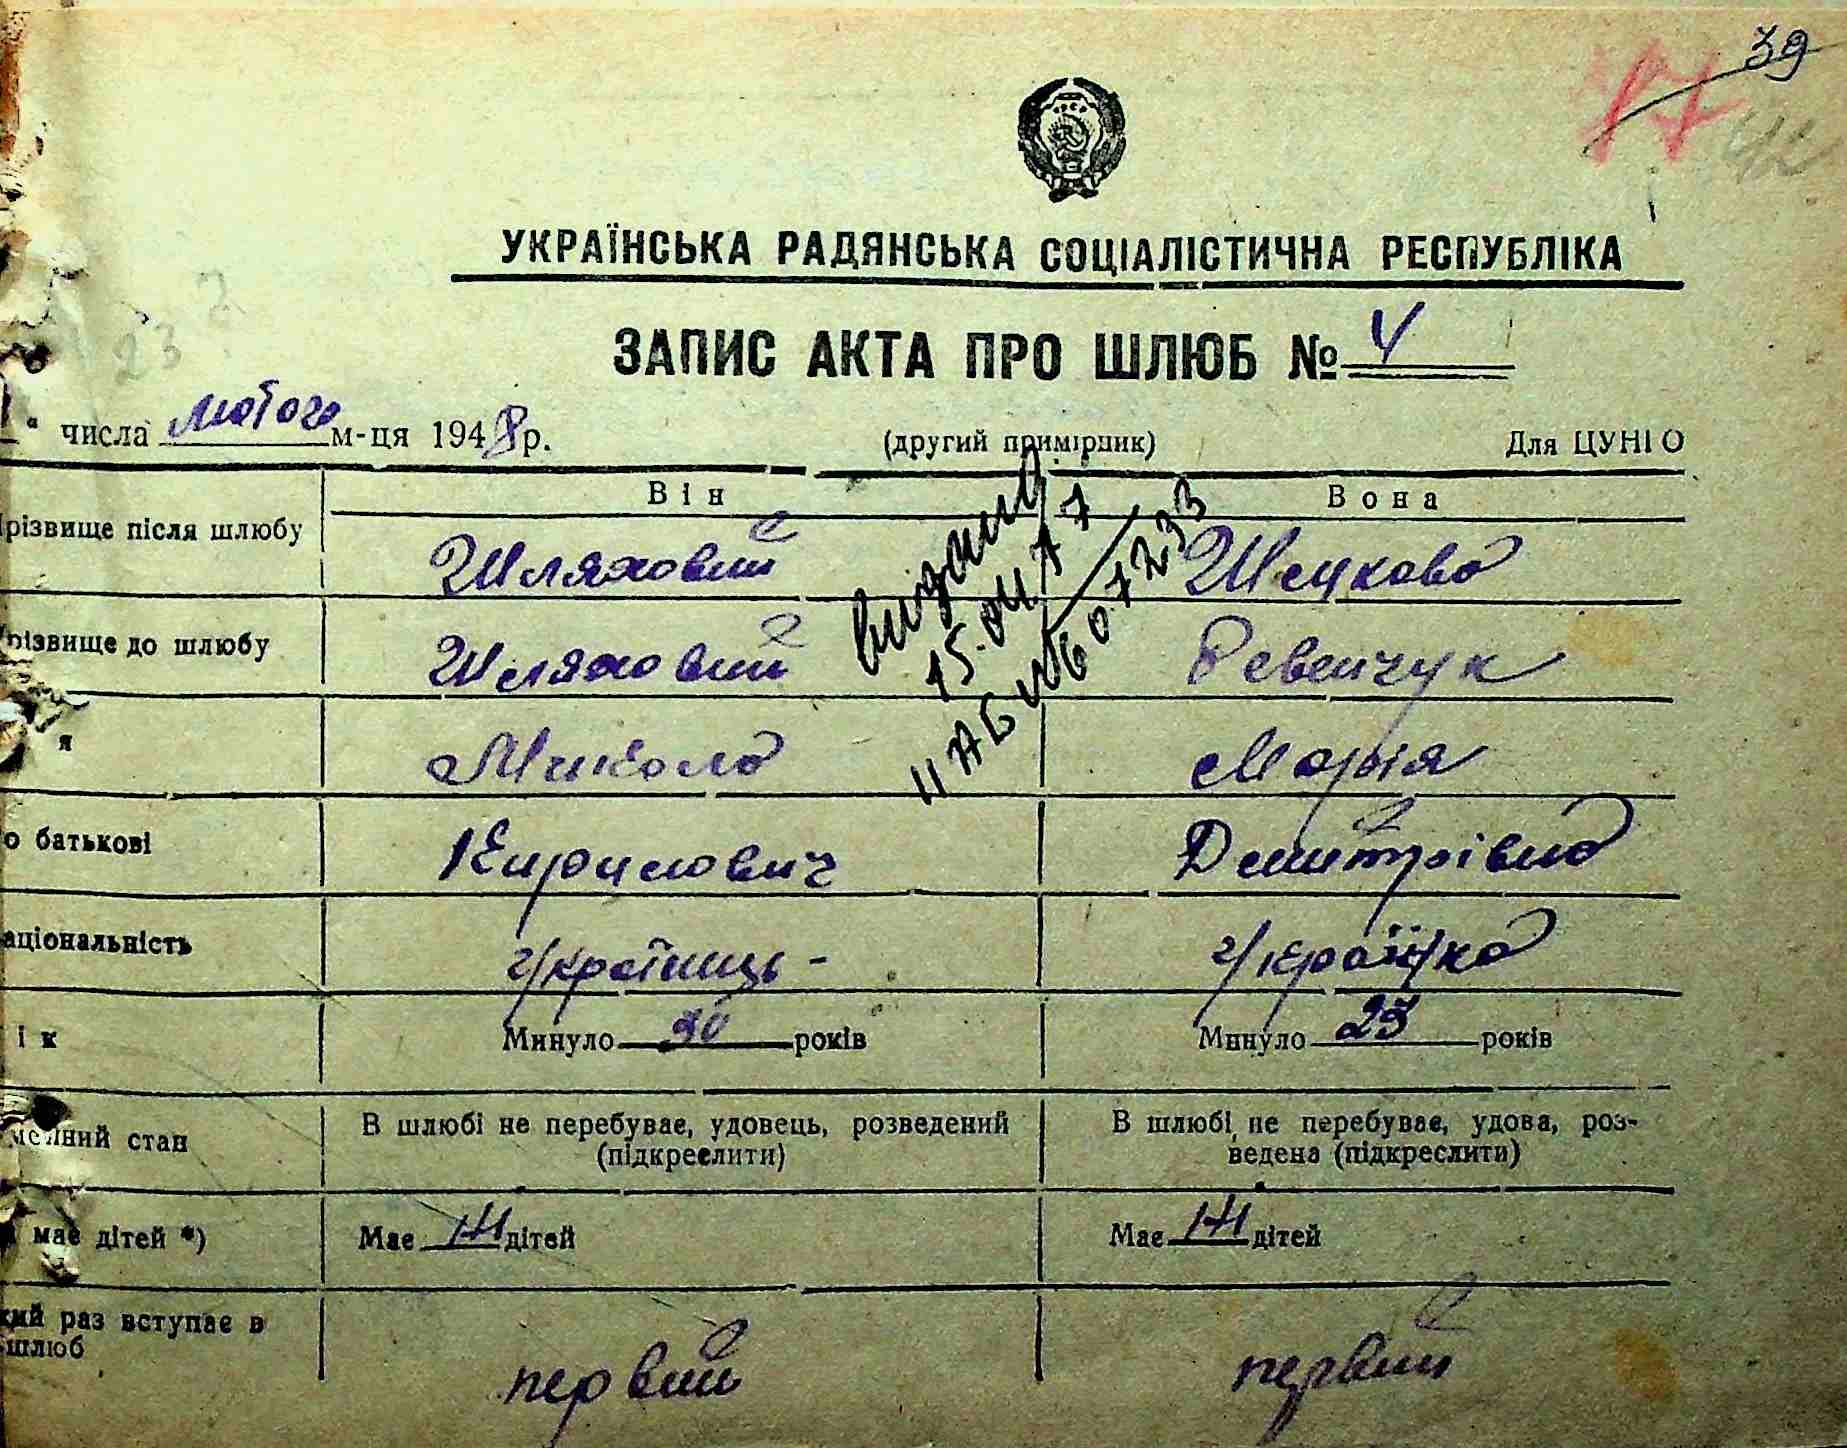 39
77
УКРАЇНСЬКА РАДЯНСЬКА СОЦІАЛІСТИЧНА РЕСПУБЛІКА
ЗАПИС АКТА ПРО ШЛЮБ № 4
" числа лютого м-ця 1948 р. (другий примірник) Для ЦУНГО
Він Вона
різвище після шлюбу Шляховий
різвище до шлюбу Шляховий Ревенчук
видано
15.04.77
II АБ № 607233
я Микола Марія
о батькові Кирилович Дмитрівна
аціональність Українець - Українка
ік Минуло 30 років Минуло 23 років
мейний стан В шлюбі не перебуває, удовець, розведений (підкреслити) В шлюбі не перебуває, удова, роз-
ведена (підкреслити)
має дітей *) Має дітей Має дітей
кий раз вступає в
шлюб первий первий